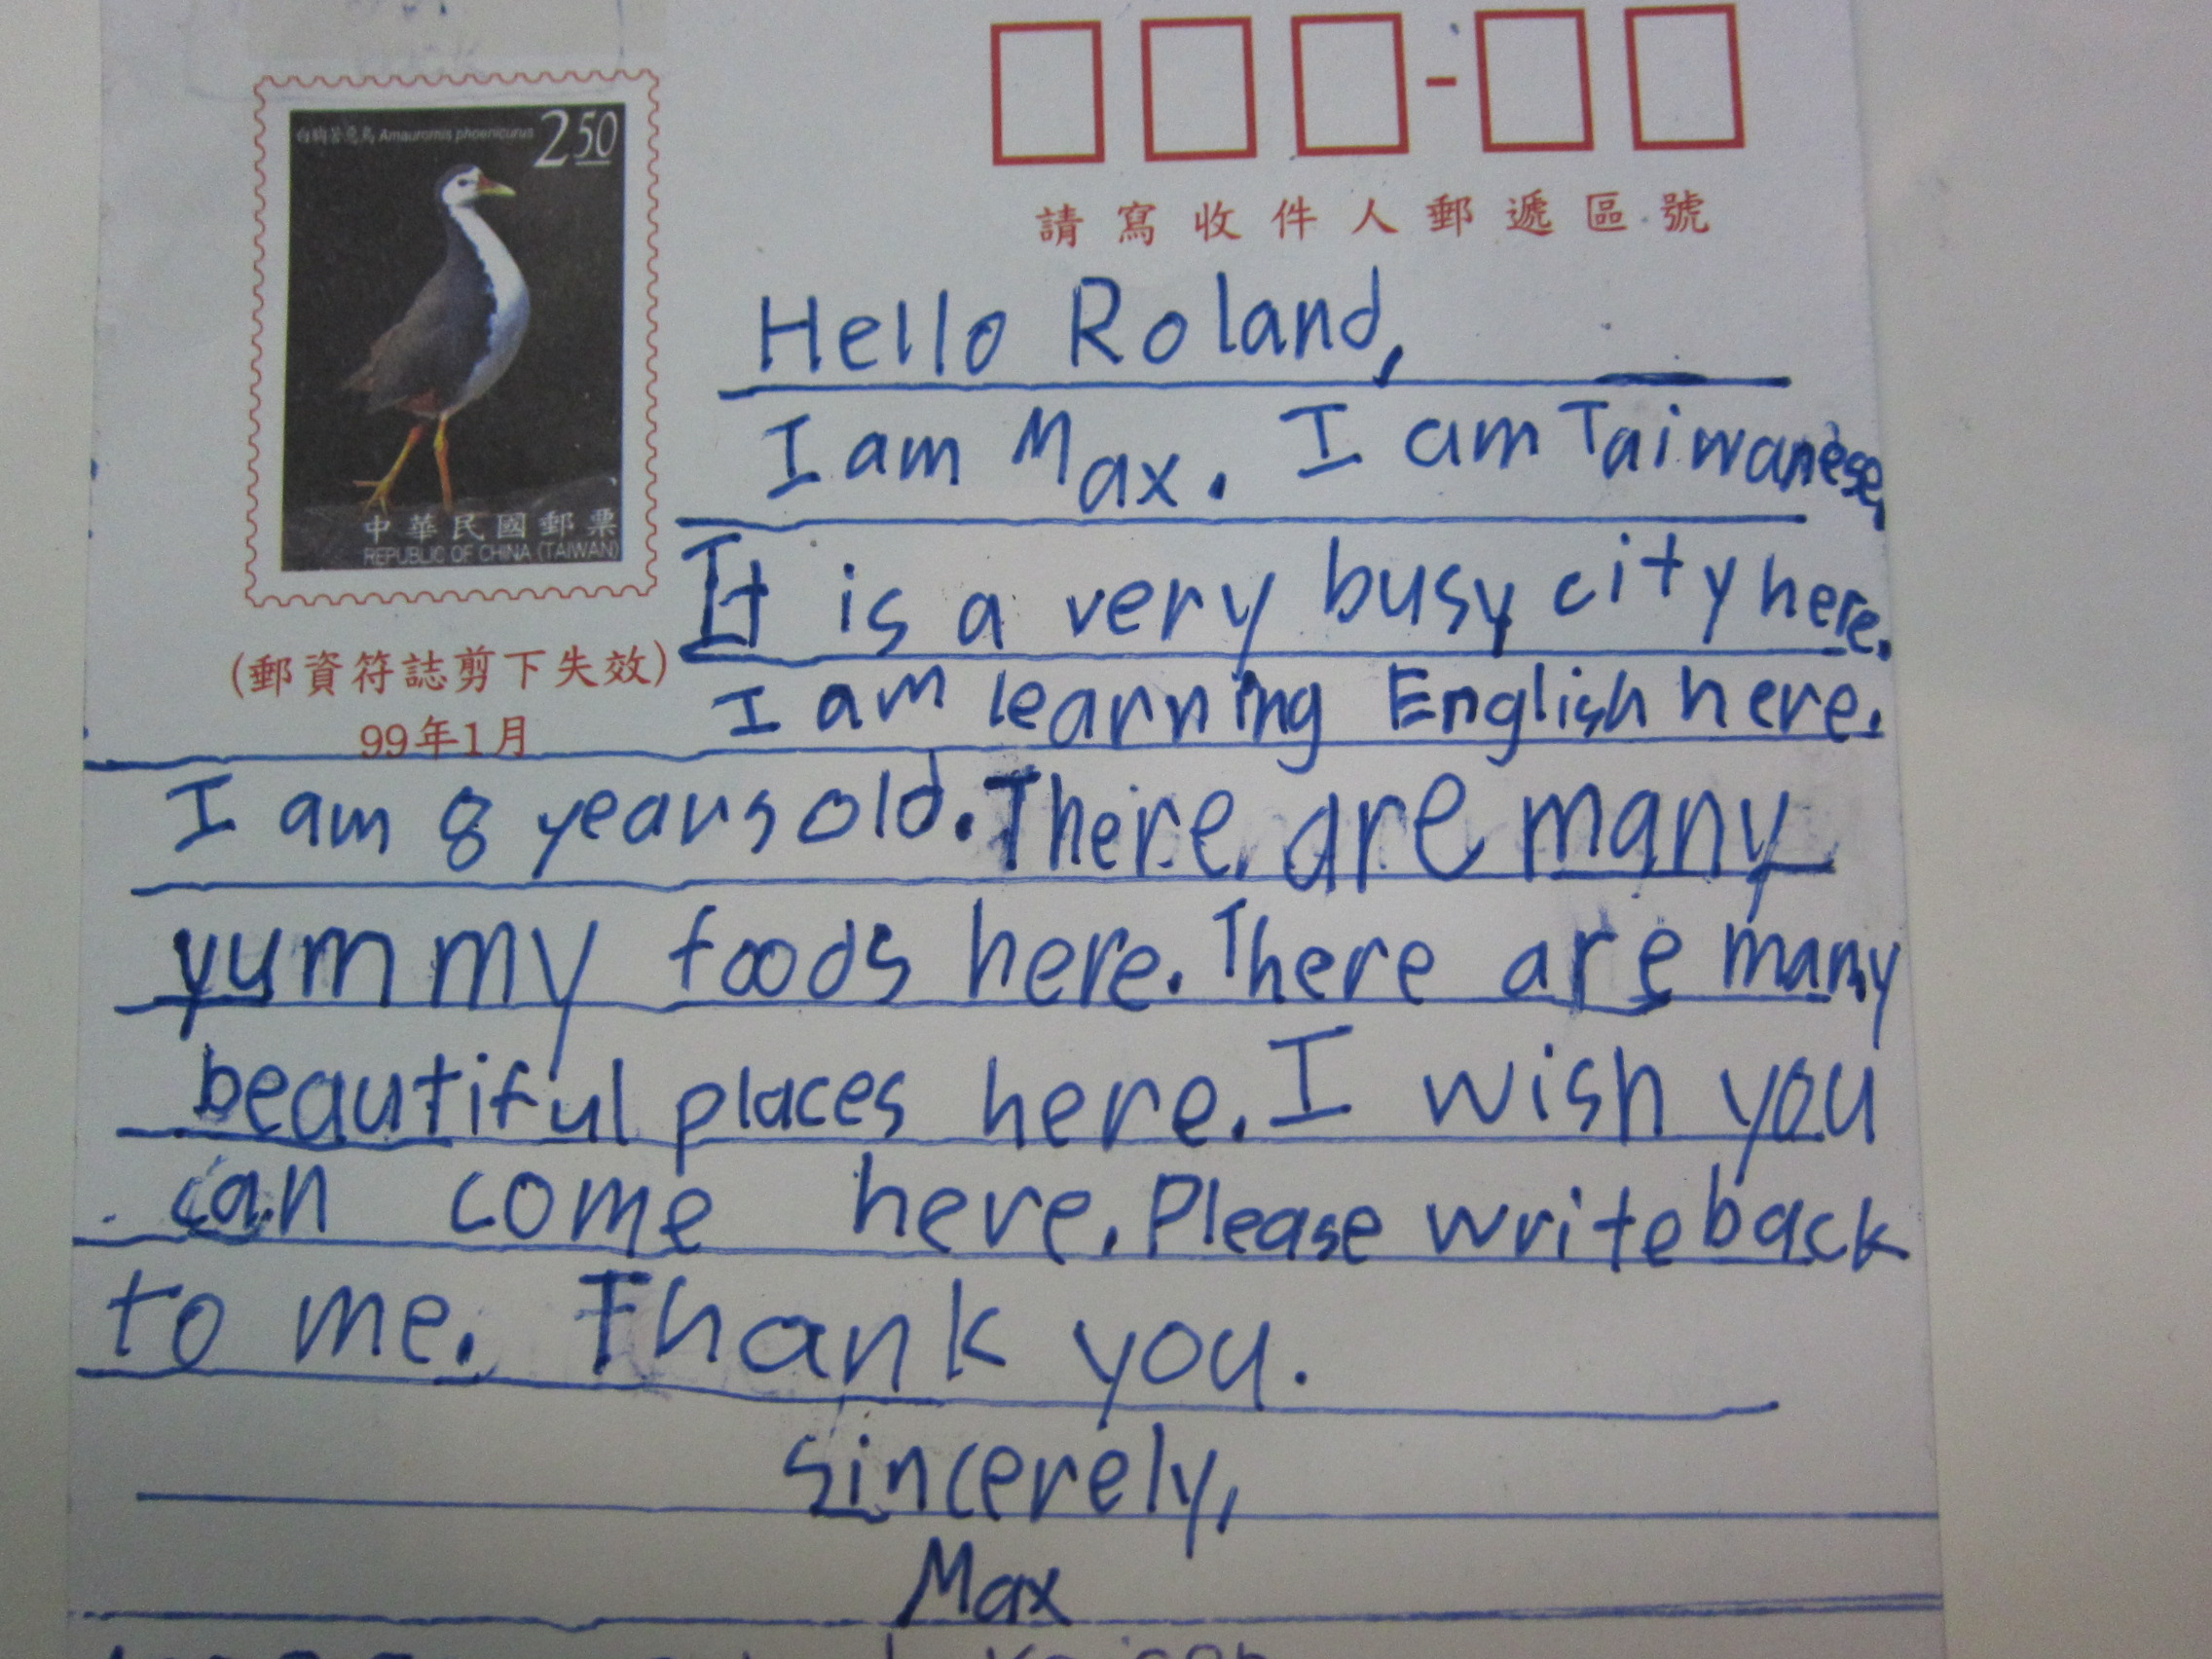 白胸苦惡鳥 Amaurornis phoenicurus
2 50
中華民國郵票
REPUBLIC OF CHINA (TAIWAN)
(郵資符誌剪下失效)
99年1月
請寫收件人郵遞區號
Hello Roland,
I am Max. I am Taiwanese,
It is a very busy city here.
I am learning English here.
I am 8 years old. There are many
yummy foods here. There are many
beautiful places here. I wish you
can come here. Please write back
to me. Thank you.
Sincerely,
Max